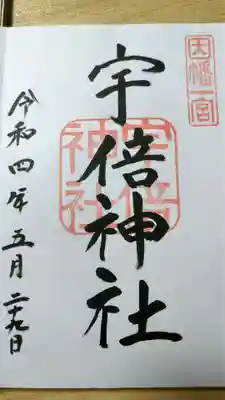 因幡一宮
宇倍神社
宇倍神社
令和四年五月二十九日